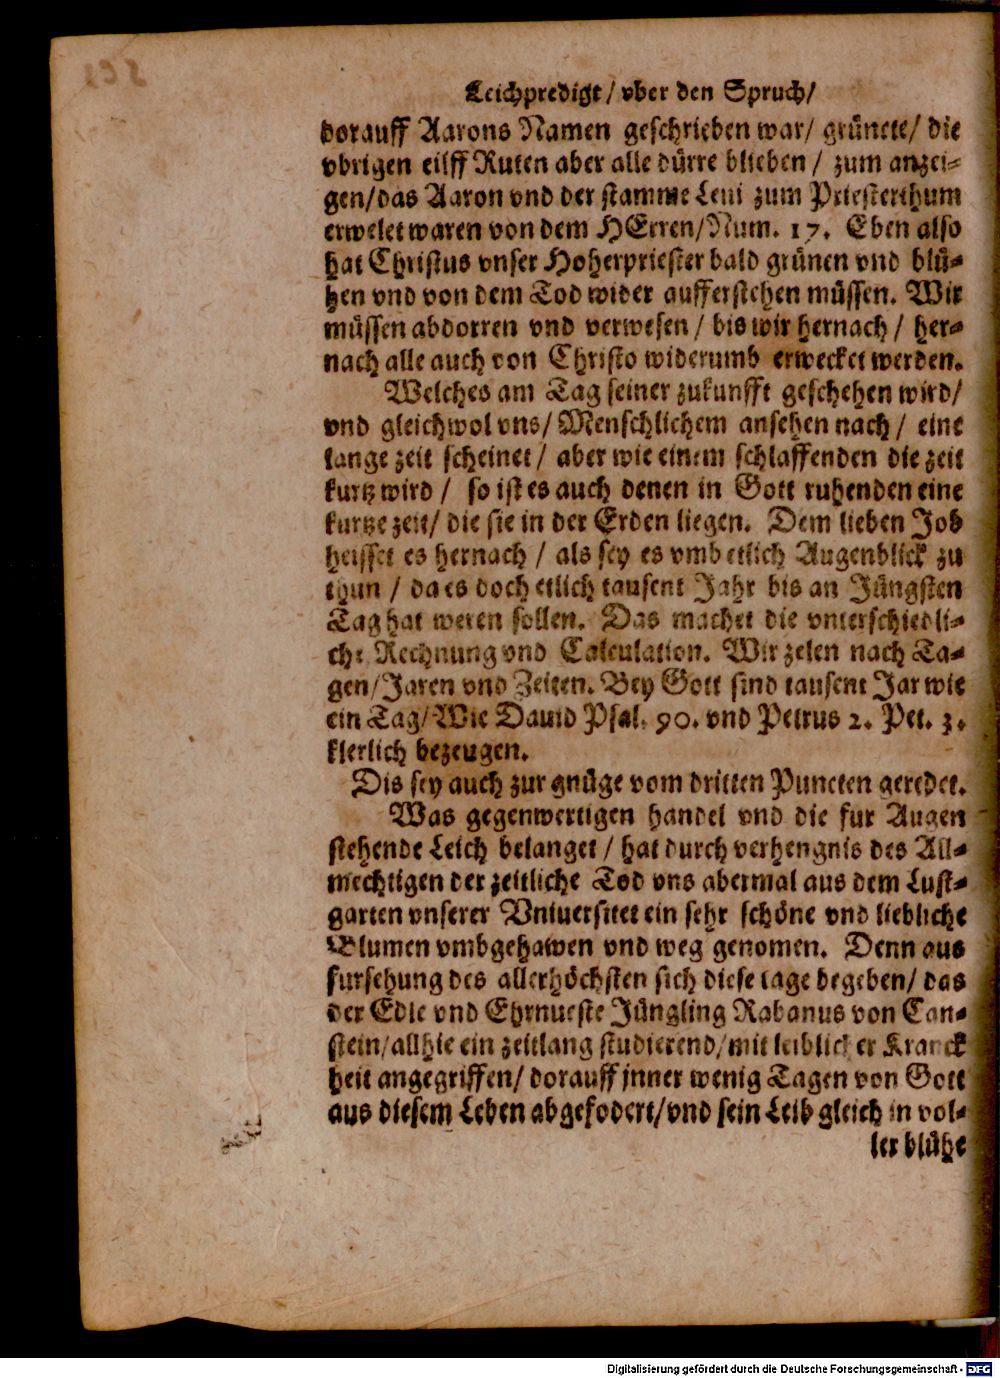 Leichpredigt / vber den Spruch /
dorauff Aarons Namen geschrieben war / grünete / die
vbrigen eilff Ruten aber alle dürre blieben / zum anzei-
gen / das Aaron vnd der stamme Leui zum Priesterthum
erwelet waren von dem HErren / Num. 17. Eben also
hat Christus vnser Hoherpriester bald grünen vnd blü-
hen vnd von dem Tod wider aufferstehen müssen. Wir
müssen abdorren vnd verwesen / bis wir hernach / her-
nach alle auch von Christo widerumb erwecket werden.
Welches am Tag seiner zukunfft geschehen wird /
vnd gleichwol vns / Menschlichem ansehen nach / eine
lange zeit scheinet / aber wie einem schlaffenden die zeit
kurtz wird / so ist es auch denen in Gott ruhenden eine
kurtze zeit / die sie in der Erden liegen. Dem lieben Job
heisset es hernach / als sey es vmb etlich Augenblick zu
thun / da es doch etlich tausent Jahr bis an Jüngsten
Tag hat weren sollen. Das machet die vnterschiedli-
che Rechnung vnd Calculation. Wir zelen nach Ta-
gen / Jaren vnd Zeiten. Bey Gott sind tausent Jar wie
ein Tag / Wie Dauid Psal. 90. vnd Petrus 2. Pet. 3.
klerlich bezeugen.
Dis sey auch zur gnüge vom dritten Puncten geredet.
Was gegenwertigen handel vnd die fur Augen
stehende Leich belanget / hat durch verhengnis des All-
mechtigen der zeitliche Tod vns abermal aus dem Lust-
garten vnserer Vniuersitet ein sehr schöne vnd liebliche
Blumen vmbgehawen vnd weg genomen. Denn aus
fursehung des allerhöchsten sich diese tage begeben / das
der Edle vnd Ehrnueste Jüngling Rabanus von Can-
stein / allhie ein zeitlang studierend / mit leiblicher Kranck
heit angegriffen / dorauff jnner wenig Tagen von Gott
aus diesem Leben abgefodert / vnd sein Leib gleich in vol-
ler blühe
Digitalisierung gefördert durch die Deutsche Forschungsgemeinschaft - DFG